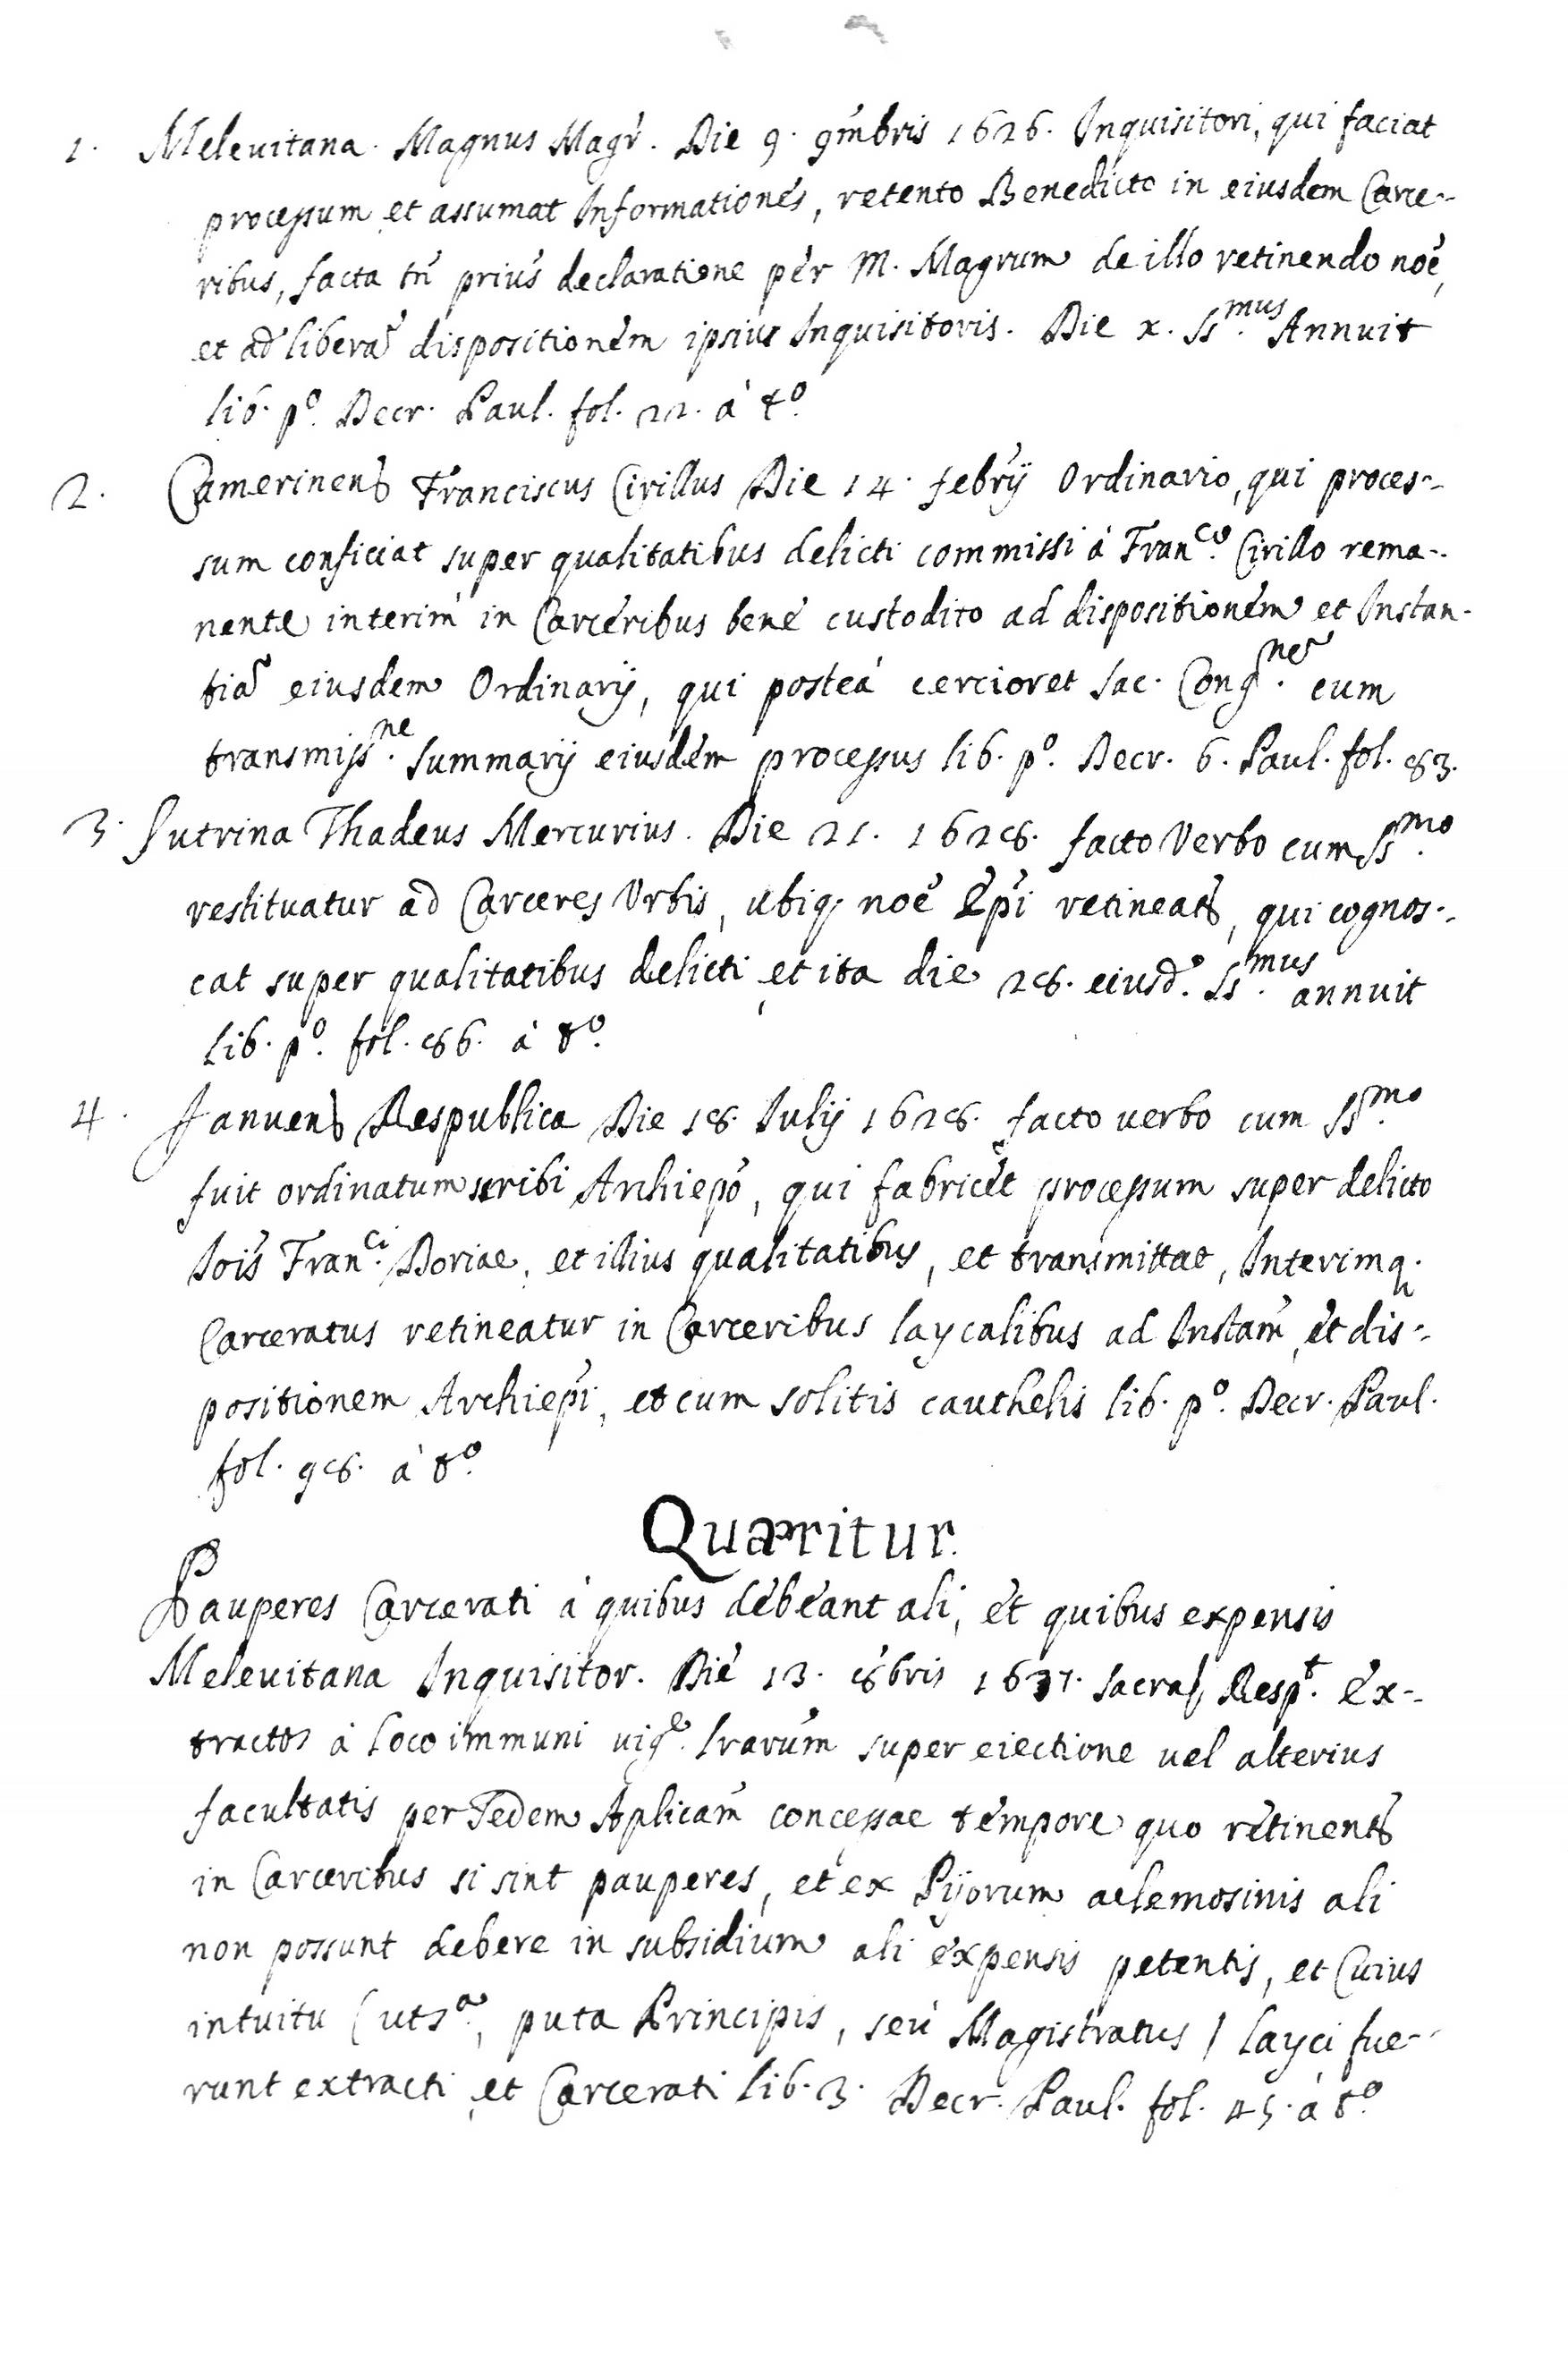 1. Meleuitana. Magnus Magr̃. Die 9. 9m̃bris 1626. Inquisitori, qui faciat
processum et assumat Informationes, retento Benedicto in eiusdem Carce-
ribus, facta tñ prius declaratione per M. Magrum de illo retinendo noẽ,
et ad liberã dispositionem ipsius Inquisitoris. Die x. Ss.mus Annuit
lib. p.º Decr. Paul. fol. 22. à tº.
2. Camerinens Franciscus Cirillus Die 14. febrij Ordinario, qui proces-
sum conficiat super qualitatibus delicti commissi à Fran.co Cirillo rema-
nente interim in Carceribus bene custodito ad dispositionem et Instan-
tiã eiusdem Ordinarij, qui posteà cercioret Sac. Cong.ne cum
transmiss.ne summarij eiusdem processus lib. pº. Decr. 6. Paul. fol. 83.
3. Sutrina Thadeus Mercurius. Die 21. 1628. facto Verbo cum Ss.mo
restituatur ad Carceres Urbis, ubiq; noẽ Ep̃i retineatr, qui cognos-
cat super qualitatibus delicti et ita die 28. eiusd. Ss.mus annuit
lib. pº. fol. 86. à tº.
4. Januens Respublica Die 18. Julij 1628. facto verbo cum Ss.mo
fuit ordinatum scribi Archiepõ, qui fabricet processum super delicto
Iois̃ Fran.ci Doriae, et illius qualitatibus, et transmittat, Interimq.
Carceratus retineatur in Carceribus laycalibus ad Instam̃, et dis-
positionem Archiep̃i, et cum solitis cauthelis lib. pº. Decr. Paul.
fol. 98. à tº.
Quæritur.
Pauperes Carcerati à quibus debeant ali, et quibus expensis
Meleuitana Inquisitor. Die 13. 8bris 1637. Sacra Resp.t Ex-
tractos à loco immuni uig.e lrarum̃ super eiectione uel alterius
facultatis per Sedem Aplicam̃ concessae tempore quo retinentr
in Carceribus si sint pauperes, et ex Pijorum aelemosinis ali
non possunt debere in subsidium ali expensis petentis, et Cuius
intuitu (uts.a, puta Principis, seu Magistratus) layci fue-
runt extracti, et Carcerati lib. 3. Decr. Paul. fol. 45. à tº